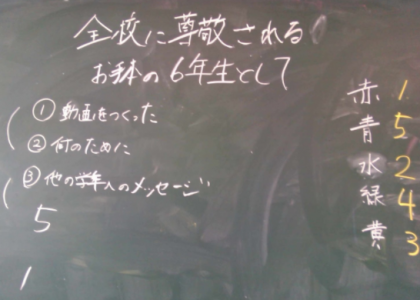 全校に尊敬される
お手本の6年生として
①動画をつくった
②何のために
③他の学年へのメッセージ
5
1
赤 1
青 5
水 2
緑 4
黄 3